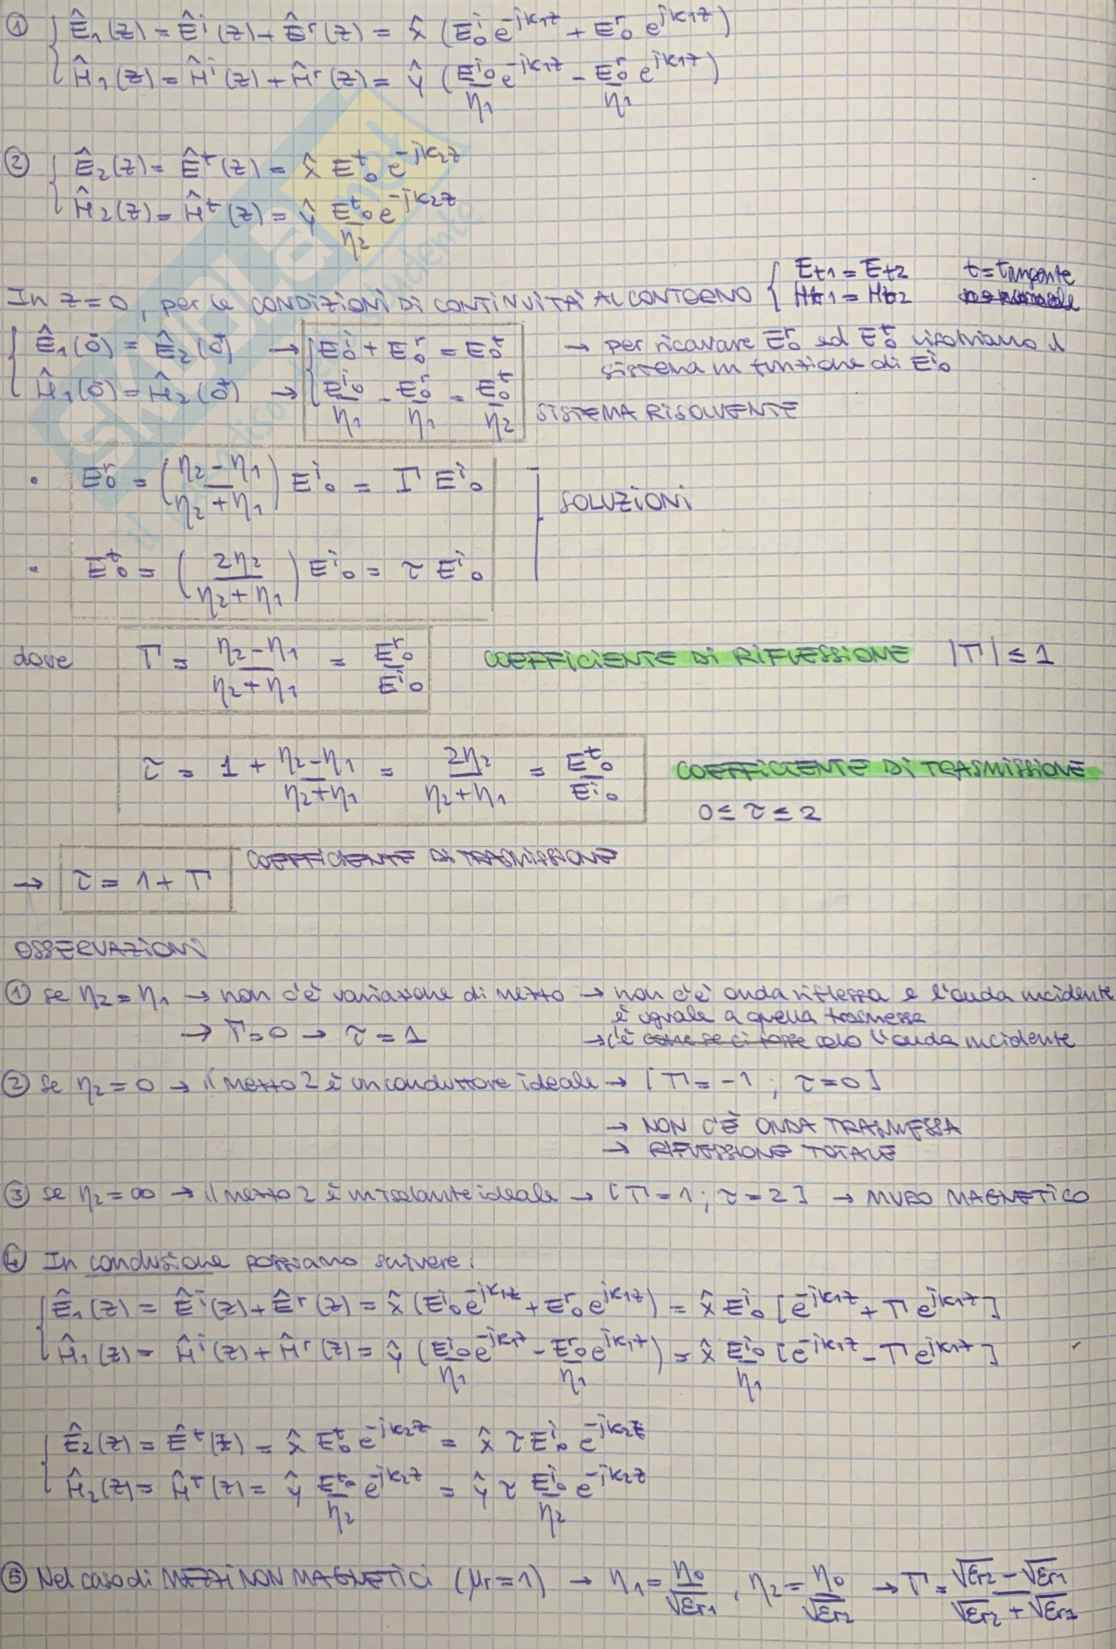 ① { Ê₁(z) = Êⁱ(z) + Êʳ(z) = x̂ (Eⁱ₀ e^{-jk₁z} + Eʳ₀ e^{jk₁z})
Ĥ₁(z) = Ĥⁱ(z) + Ĥʳ(z) = ŷ (Eⁱ₀/η₁ e^{-jk₁z} - Eʳ₀/η₁ e^{jk₁z})
② { Ê₂(z) = Êᵗ(z) = x̂ Eᵗ₀ e^{-jk₂z}
Ĥ₂(z) = Ĥᵗ(z) = ŷ Eᵗ₀/η₂ e^{-jk₂z}
In z=0, per le CONDIZIONI DI CONTINUITÀ AL CONTORNO { Et1 = Et2 t = tangente
Ht1 = Ht2
{ Ê₁(0) = Ê₂(0) → { Eⁱ₀ + Eʳ₀ = Eᵗ₀ → per ricavare Eʳ₀ ed Eᵗ₀ risolviamo il
sistema in funzione di Eⁱ₀
Ĥ₁(0) = Ĥ₂(0) → Eⁱ₀/η₁ - Eʳ₀/η₁ = Eᵗ₀/η₂ SISTEMA RISOLVENTE
• Eʳ₀ = ((η₂-η₁)/(η₂+η₁)) Eⁱ₀ = Γ Eⁱ₀
SOLUZIONI
• Eᵗ₀ = (2η₂/(η₂+η₁)) Eⁱ₀ = τ Eⁱ₀
dove Γ = (η₂-η₁)/(η₂+η₁) = Eʳ₀/Eⁱ₀ COEFFICIENTE DI RIFLESSIONE |Γ| ≤ 1
τ = 1 + (η₂-η₁)/(η₂+η₁) = 2η₂/(η₂+η₁) = Eᵗ₀/Eⁱ₀ COEFFICIENTE DI TRASMISSIONE
0 ≤ τ ≤ 2
→ τ = 1 + Γ COEFFICIENTE DI TRASMISSIONE
OSSERVAZIONI
① se η₂ = η₁ → non c'è variazione di mezzo → non c'è onda riflessa e l'onda incidente
è uguale a quella trasmessa
→ Γ=0 → τ = 1 → c'è come se ci fosse solo l'onda incidente
② se η₂ = 0 → il mezzo 2 è un conduttore ideale → [Γ = -1 ; τ = 0]
→ NON C'È ONDA TRASMESSA
→ RIFLESSIONE TOTALE
③ se η₂ = ∞ → il mezzo 2 è un isolante ideale → [Γ = 1 ; τ = 2] → MURO MAGNETICO
④ In conclusione possiamo scrivere:
{ Ê₁(z) = Êⁱ(z) + Êʳ(z) = x̂ (Eⁱ₀ e^{-jk₁z} + Eʳ₀ e^{jk₁z}) = x̂ Eⁱ₀ [e^{-jk₁z} + Γ e^{jk₁z}]
Ĥ₁(z) = Ĥⁱ(z) + Ĥʳ(z) = ŷ (Eⁱ₀/η₁ e^{-jk₁z} - Eʳ₀/η₁ e^{jk₁z}) = x̂ Eⁱ₀/η₁ [e^{-jk₁z} - Γ e^{jk₁z}]
{ Ê₂(z) = Êᵗ(z) = x̂ Eᵗ₀ e^{-jk₂z} = x̂ τ Eⁱ₀ e^{-jk₂z}
Ĥ₂(z) = Ĥᵗ(z) = ŷ Eᵗ₀/η₂ e^{-jk₂z} = ŷ τ Eⁱ₀/η₂ e^{-jk₂z}
⑤ Nel caso di MEZZI NON MAGNETICI (μr = 1) → η₁ = η₀/√εr1 , η₂ = η₀/√εr2 → Γ = (√εr2 - √εr1)/(√εr2 + √εr1)